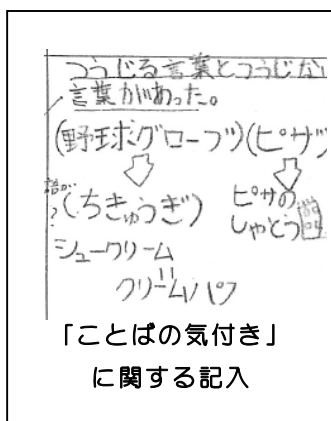 つうじる言葉とつうじない
言葉があった。
(野球グローブ)(ピザ)
(ちきゅうぎ) ピサの
しゃとう
シュークリーム
クリームパフ
「ことばの気付き」
に関する記入